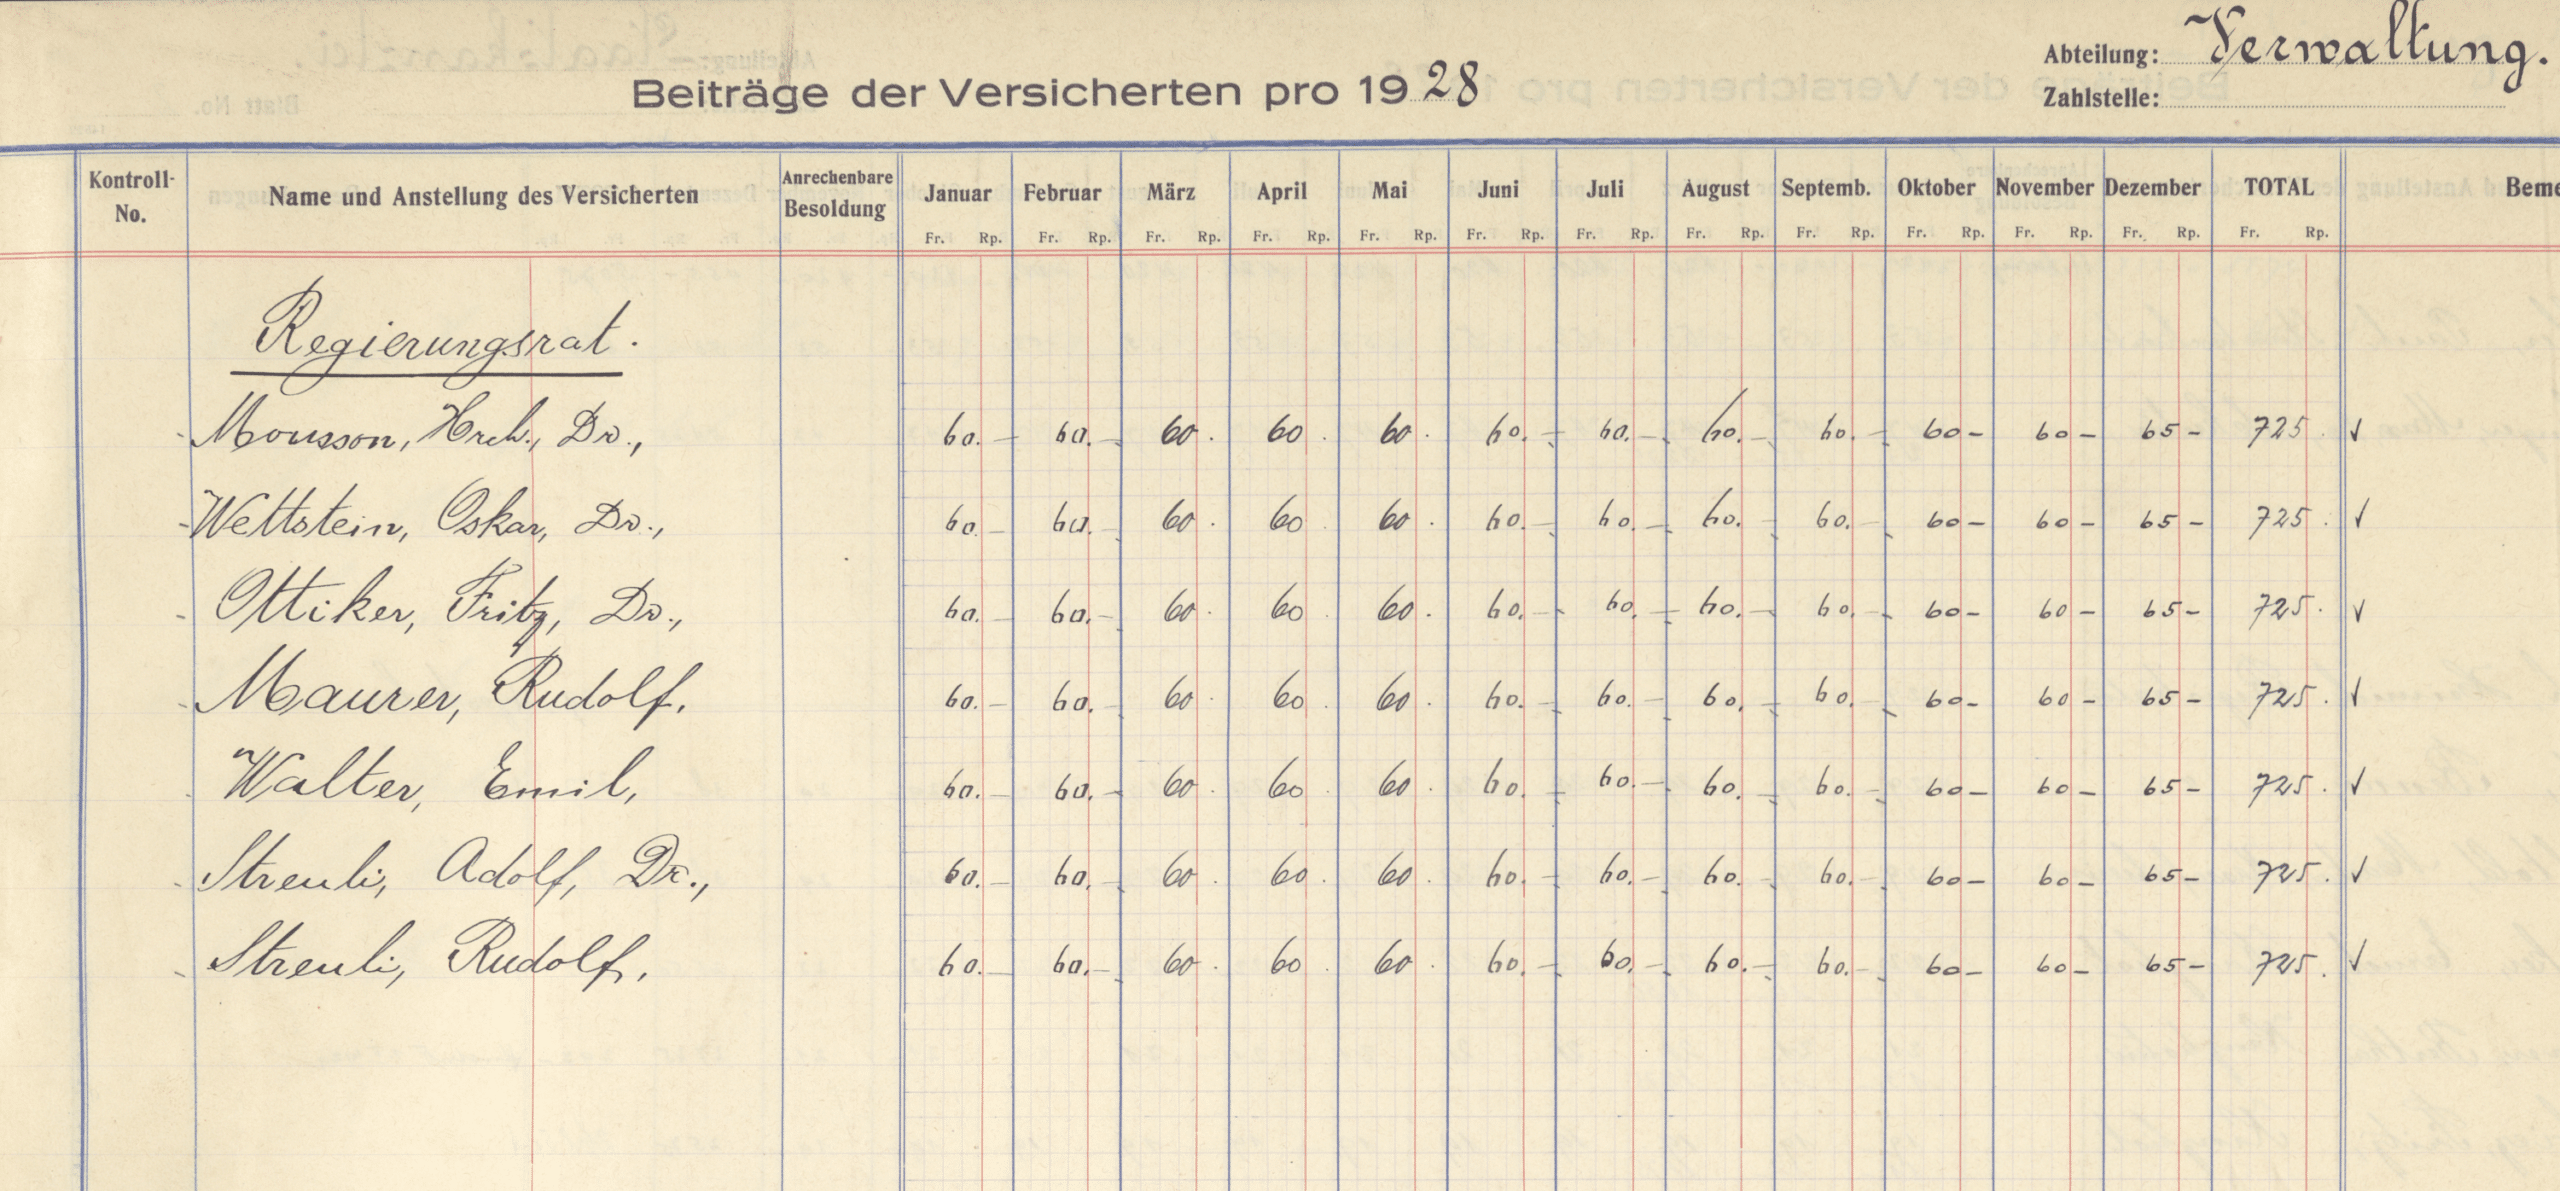 Abteilung: Verwaltung.
Beiträge der Versicherten pro 1928
Zahlstelle:
Kontroll-No. Name und Anstellung des Versicherten Anrechenbare Besoldung Januar Februar März April Mai Juni Juli August Septemb. Oktober November Dezember TOTAL Beme
Fr. Rp. Fr. Rp. Fr. Rp. Fr. Rp. Fr. Rp. Fr. Rp. Fr. Rp. Fr. Rp. Fr. Rp. Fr. Rp. Fr. Rp. Fr. Rp. Fr. Rp.
Regierungsrat.
Mousson, Hrch., Dr., 60.- 60.- 60. 60. 60. 60.- 60.- 60.- 60.- 60- 60- 65- 725. ✓
Wettstein, Oskar, Dr., 60.- 60.- 60. 60. 60. 60.- 60.- 60.- 60.- 60- 60- 65- 725. ✓
Ottiker, Fritz, Dr., 60.- 60.- 60. 60. 60. 60.- 60.- 60.- 60.- 60- 60- 65- 725. ✓
Maurer, Rudolf. 60.- 60.- 60. 60. 60. 60.- 60.- 60.- 60.- 60- 60- 65- 725. ✓
Walter, Emil, 60.- 60.- 60. 60. 60. 60.- 60.- 60.- 60.- 60- 60- 65- 725. ✓
Streuli, Adolf, Dr., 60.- 60.- 60. 60. 60. 60.- 60.- 60.- 60.- 60- 60- 65- 725. ✓
Streuli, Rudolf. 60.- 60.- 60. 60. 60. 60.- 60.- 60.- 60.- 60- 60- 65- 725. ✓